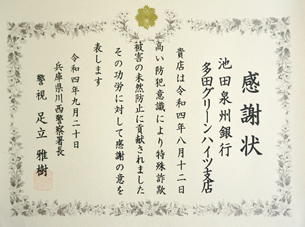 感謝状
池田泉州銀行
多田グリーンハイツ支店
貴店は令和四年八月十二日
高い防犯意識により特殊詐欺
被害の未然防止に貢献されました
その功労に対して感謝の意を
表します
令和四年九月二十日
兵庫県川西警察署長
警視 足立雅樹